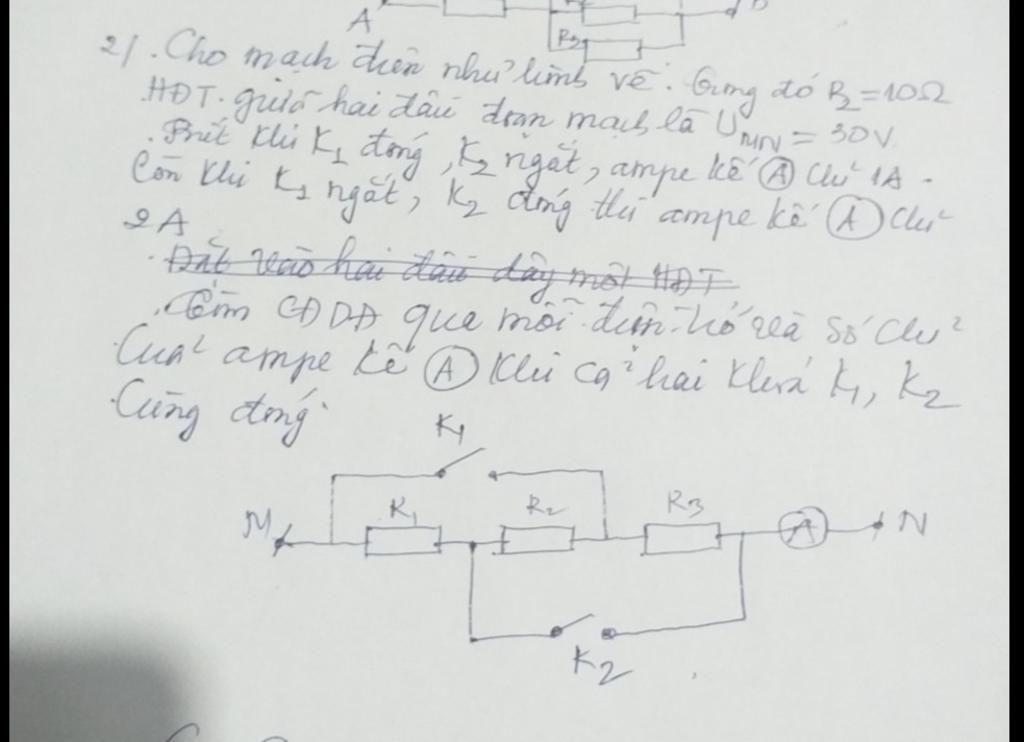 A
R3
2/. Cho mạch điện như hình vẽ. Trong đó R2 = 10Ω
.HĐT. giữa hai đầu đoạn mạch là UMN = 30V.
. Biết khi K1 đóng, K2 ngắt, ampe kế (A) chỉ 1A.
Còn khi K1 ngắt, K2 đóng thì ampe kế (A) chỉ
2A
. Đặt vào hai đầu dây một HĐT
. Tìm CĐDĐ qua mỗi điện trở và số chỉ
Của ampe kế (A) khi cả hai khoá K1, K2
Cùng đóng.
K1
M K1 R2 R3 A N
K2